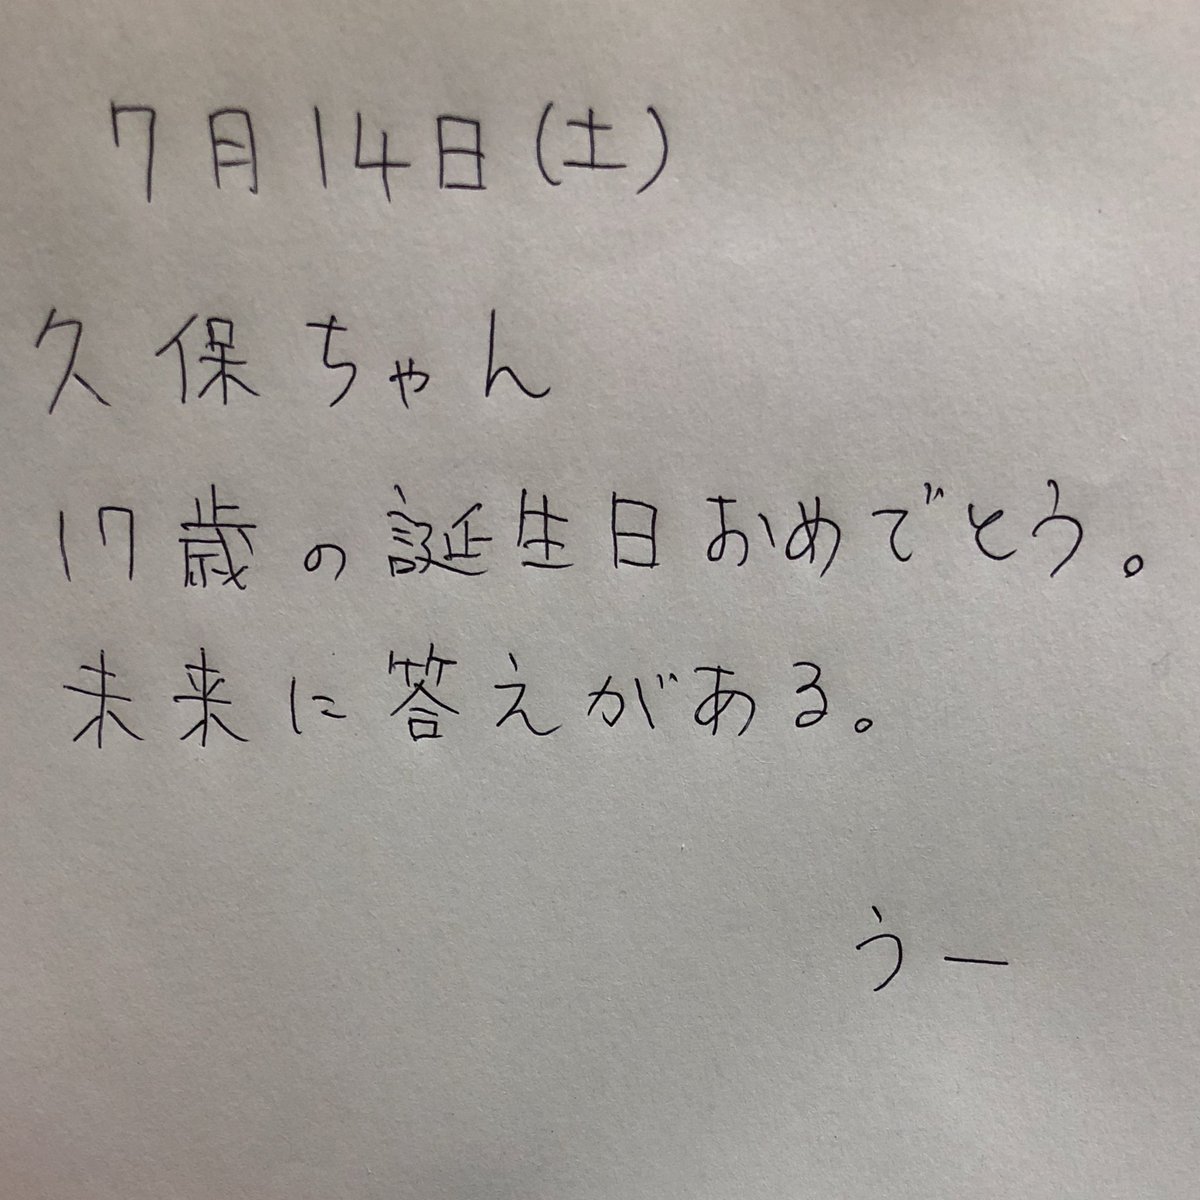 7月14日(土)
久保ちゃん
17歳の誕生日おめでとう。
未来に答えがある。
うー